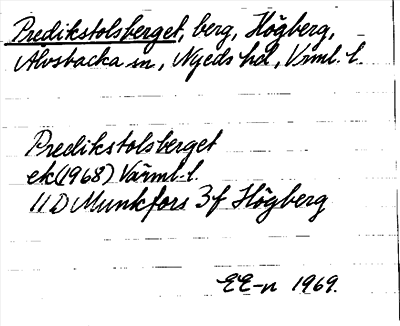 Predikstolsberget, berg, Högberg,
Alvsbacka sn, Nyeds hd, Vrml. l.
Predikstolsberget
ek (1968) Värml. l.
11 D Munkfors 3f Högberg
EE-n 1969.